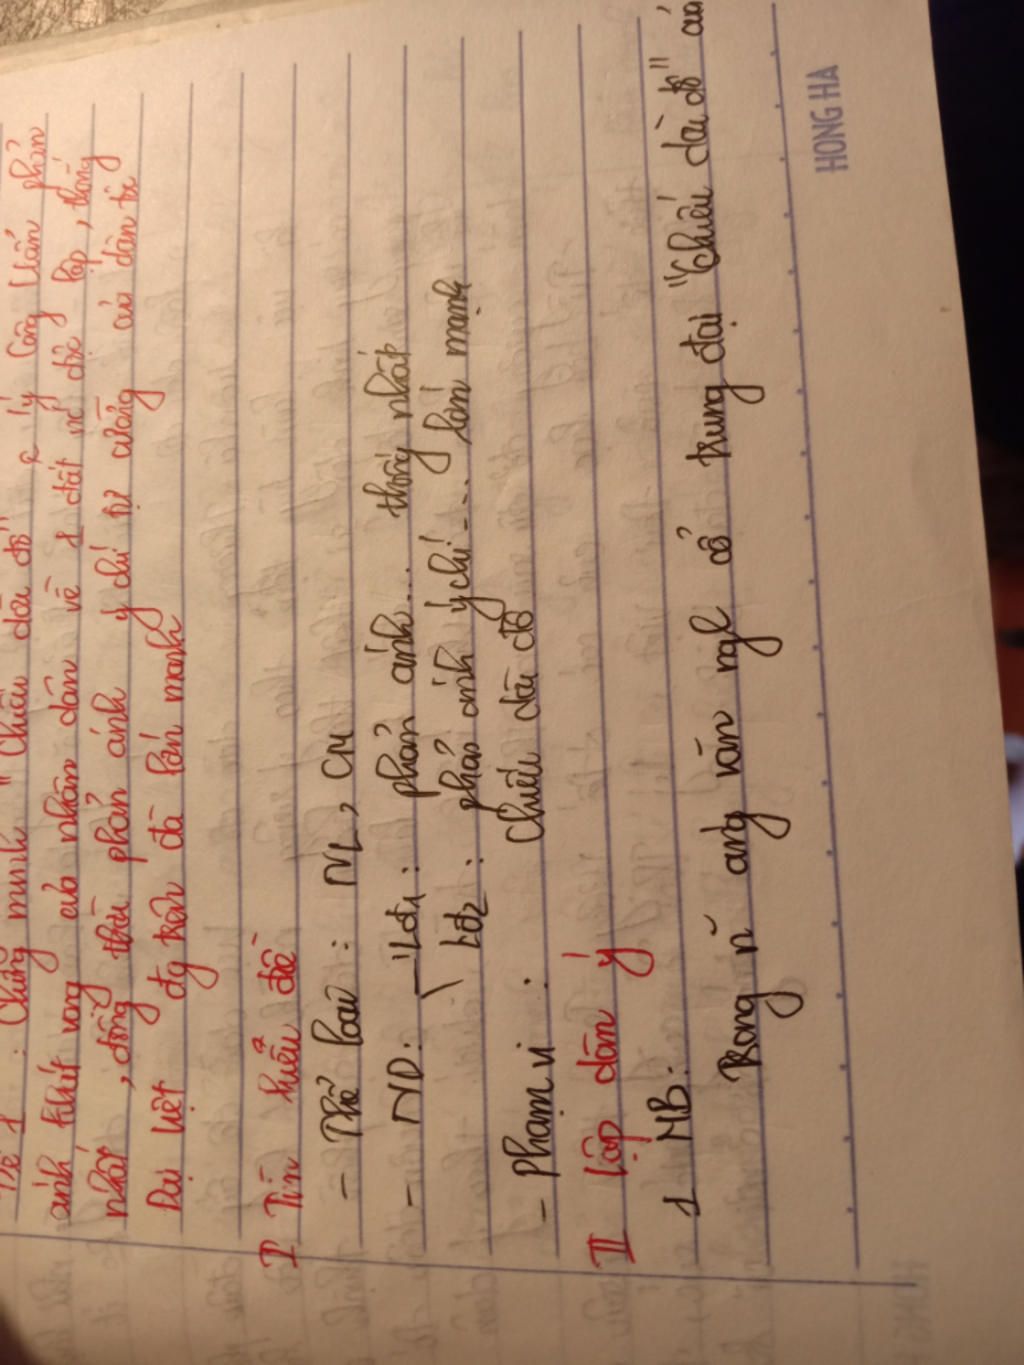 Đề 1 : Chứng minh "Chiếu dời đô" of Lý Công Uẩn phản
ánh khát vọng của nhân dân về 1 đất nc độc lập, thống
nhất, đồng thời phản ánh ý chí tự cường của dân tộc
Đại Việt đg trên đà lớn mạnh
I Tìm hiểu đề
- Thể loại : NL, CM
- ND: - Lđ1 : phản ánh... thống nhất
Lđ2 : phản ánh ý chí ... lớn mạnh
- Phạm vi : Chiếu dời đô
II lập dàn ý
1 MB:
Trong n~ áng văn ngl cổ trung đại "Chiếu dời đô" của
HONG HA